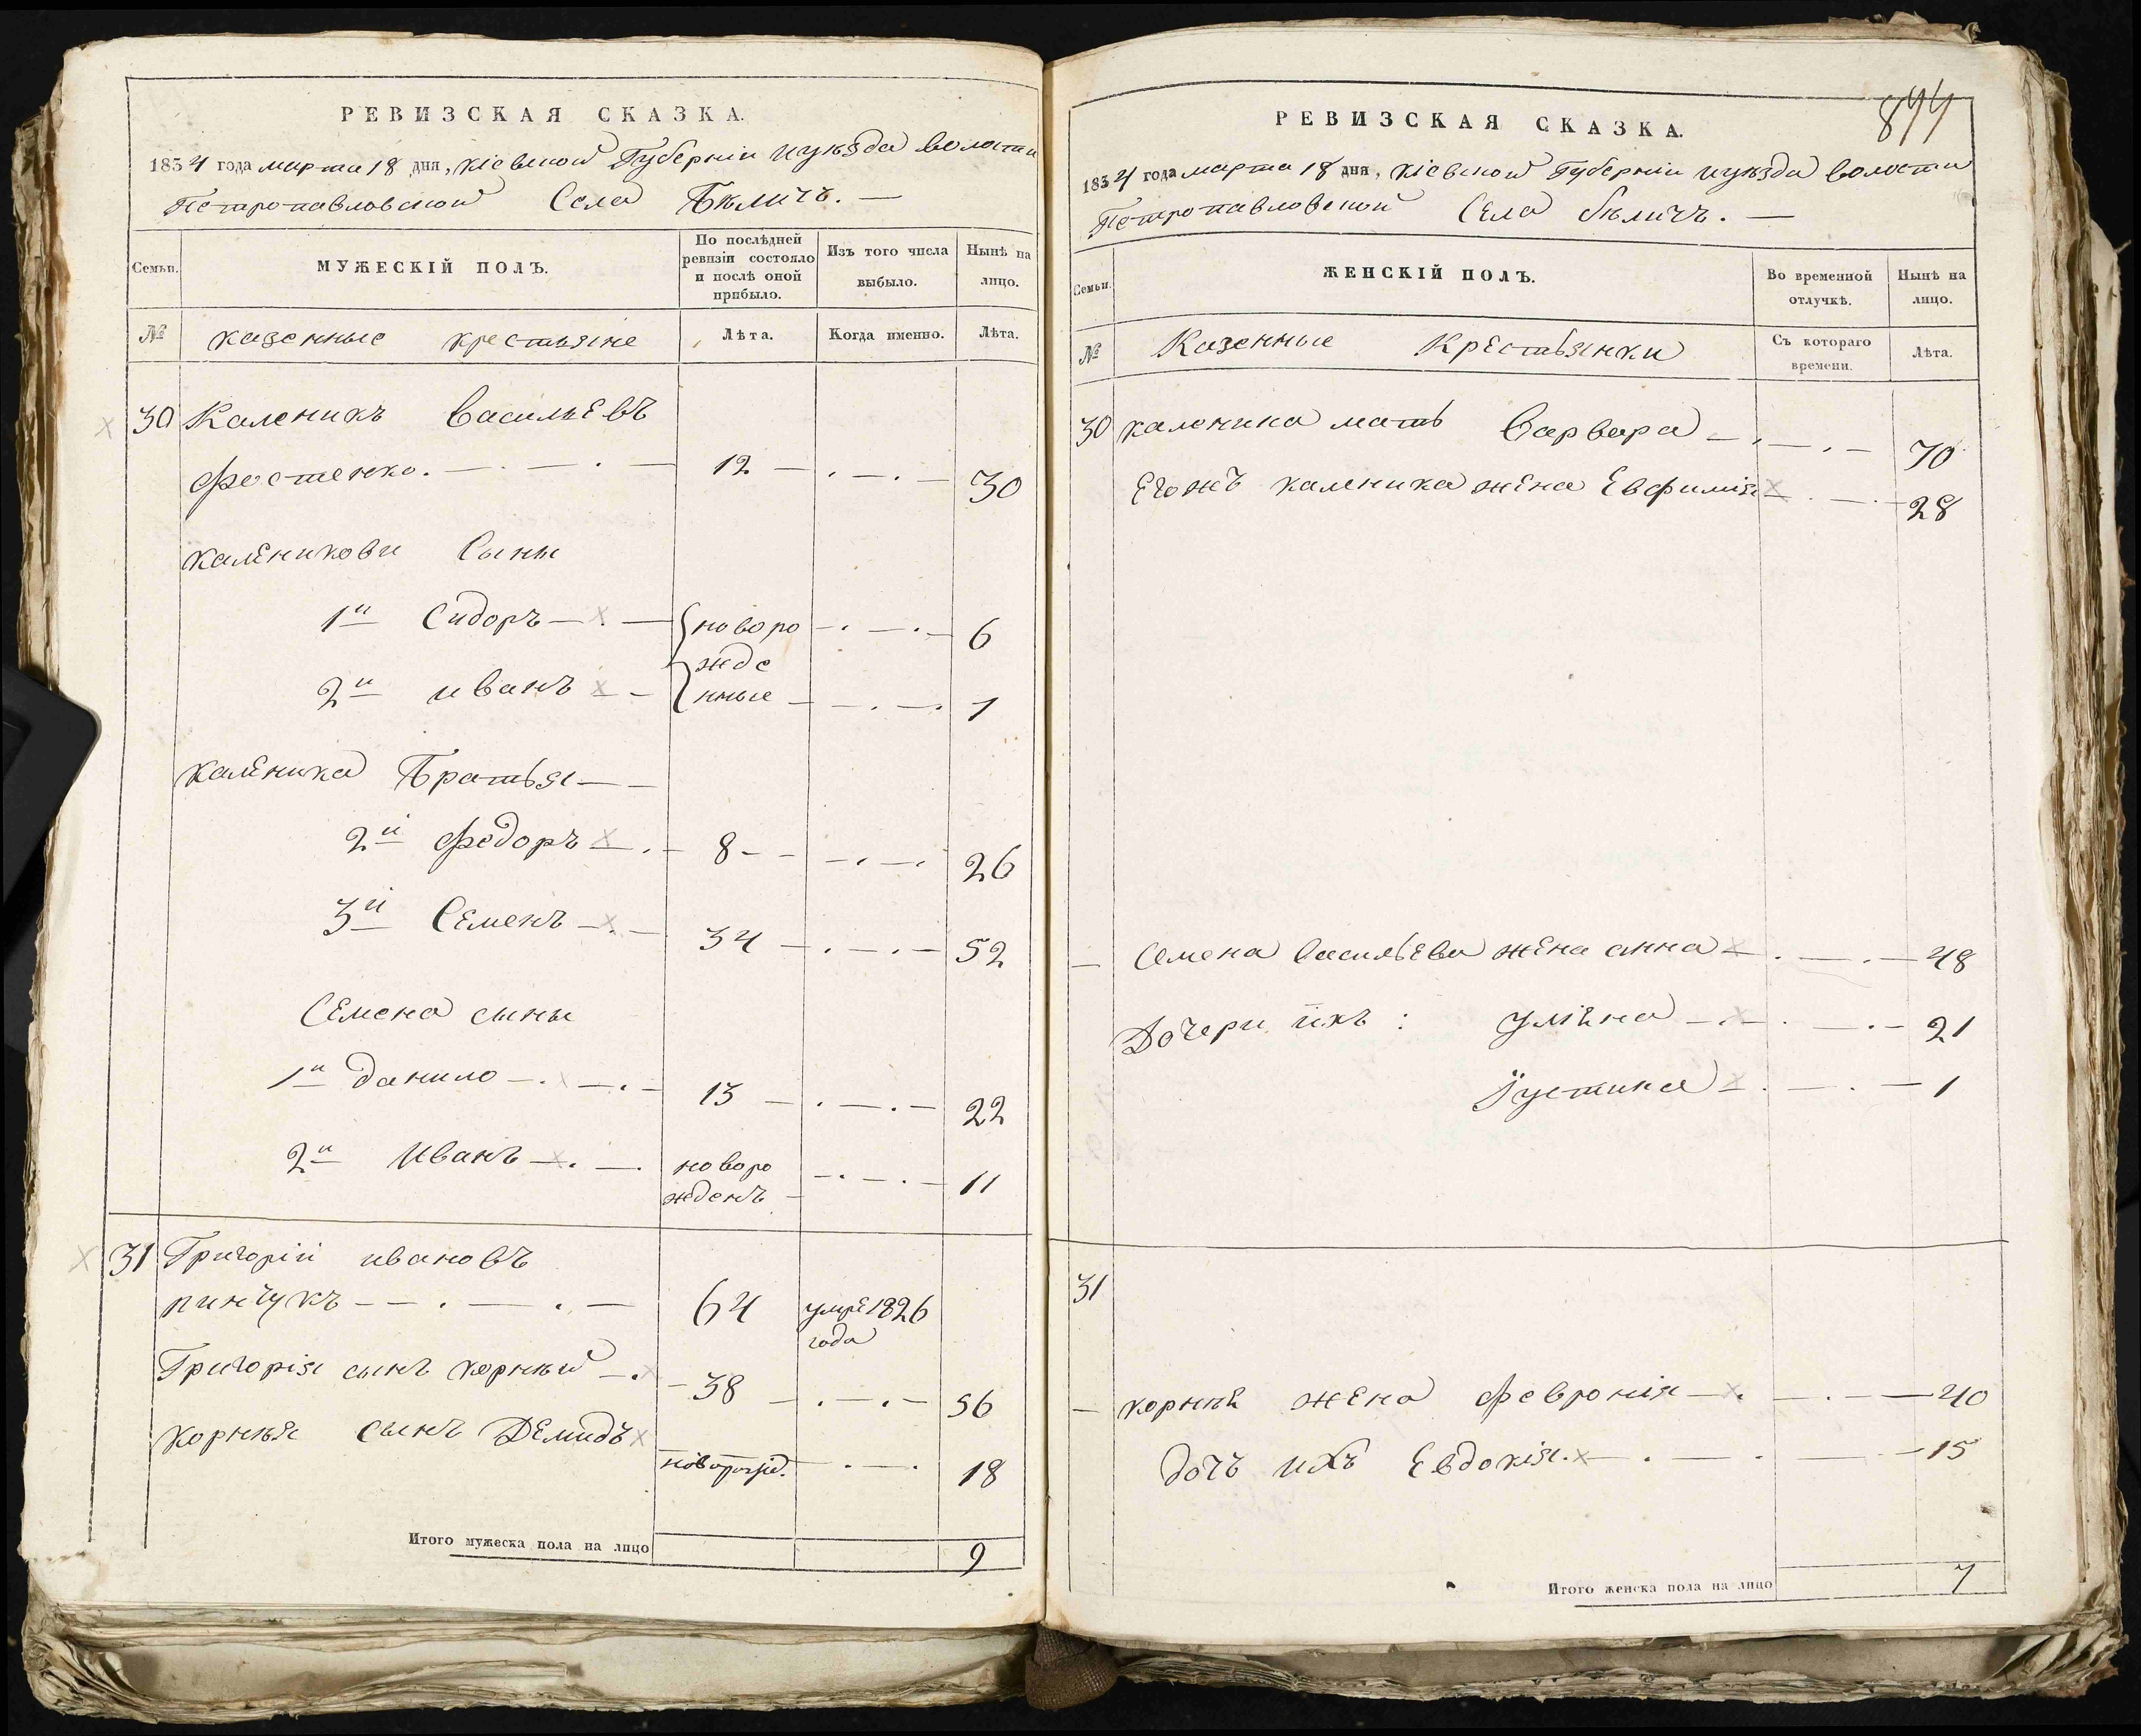 РЕВИЗСКАЯ СКАЗКА.
1834 года марта 18 дня, Кіевской Губерніи и уѣзда волости
Петропавловской Села Бѣличъ. —
Семьи.
МУЖЕСКІЙ ПОЛЪ.
По послѣдней ревизіи состояло и послѣ оной прибыло.
Изъ того числа выбыло.
Нынѣ на лицо.
№
казенные крестьяне
Лѣта.
Когда именно.
Лѣта.
30 Каленикъ Васильевъ
Фостенко. 12 30
Калениковы Сыны
1й Сидоръ новоро 6
жде
2й иванъ нные 1
Каленика Братья
2й Федоръ 8 26
3й Семенъ 34 52
Семена сыны
1й данило 13 22
2й Иванъ новоро 11
жденъ
31 Григорій ивановъ
пинчукъ 64 умре 1826
года
Григорія сынъ корнѣй 38 56
корнѣя сынъ Демидъ новорожд. 18
Итого мужеска пола на лицо 9
844
РЕВИЗСКАЯ СКАЗКА.
1834 года марта 18 дня, Кіевской Губерніи и уѣзда волости
Петропавловской Села бѣличъ. —
Семьи.
ЖЕНСКІЙ ПОЛЪ.
Во временной отлучкѣ.
Нынѣ на лицо.
№
Казенные Крестьянки
Съ котораго времени.
Лѣта.
30 каленика мать Варвара 70
Егожъ каленика жена Евфимія 28
Семена Васильева жена анна 48
Дочери ихъ: Уліяна 21
Іустина 1
31
корнѣя жена Февронія 40
дочь ихъ Евдокія. 15
Итого женска пола на лицо 7